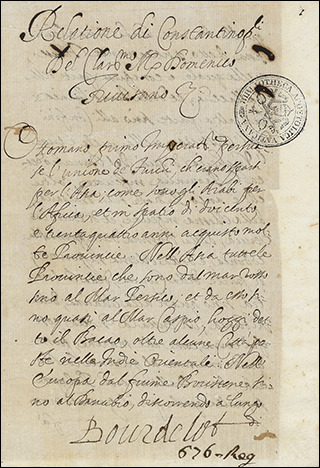 Relatione di Constantinop.li
Del Clar.mo M. Domenico
Trivisano
Ottomano primo Imperat.
se l'unione de Turchi, ch'erano sparsi
per l'Asia; come son gli Arabi per
l'Africa, et in spatio di ducento,
e trentaquattro anni acquistò mol-
te Provincie. Nell'Asia tutte le
Provincie, che sono dal mar rosso
sino al Mar Persico, et da esso si-
no quasi al Mar Caspio, hoggi det-
to il Bacao, oltre alcune
nella Indie Orientale. Nell'
Europa dal fiume si-
no al Danubio, discorrendo a lungo
Bourdelot
676-Reg
1
BIBLIOTHECA APOSTOLICA VATICANA